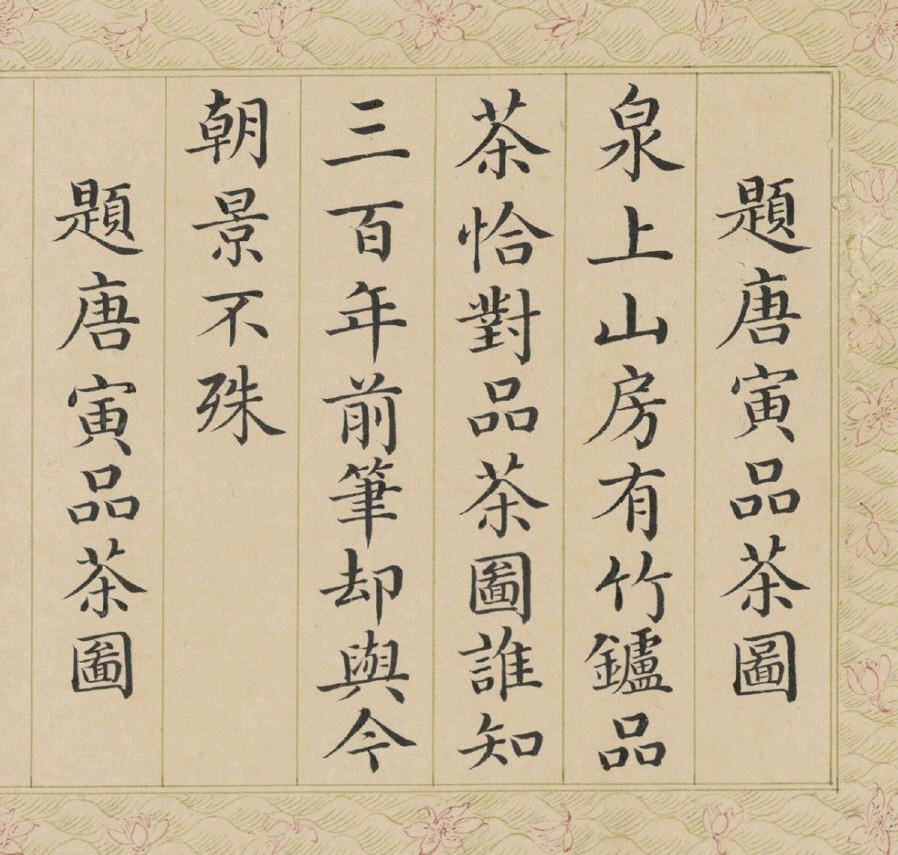 題唐寅品茶圖
泉上山房有竹鑪品
茶恰對品茶圖誰知
三百年前筆却與今
朝景不殊
題唐寅品茶圖